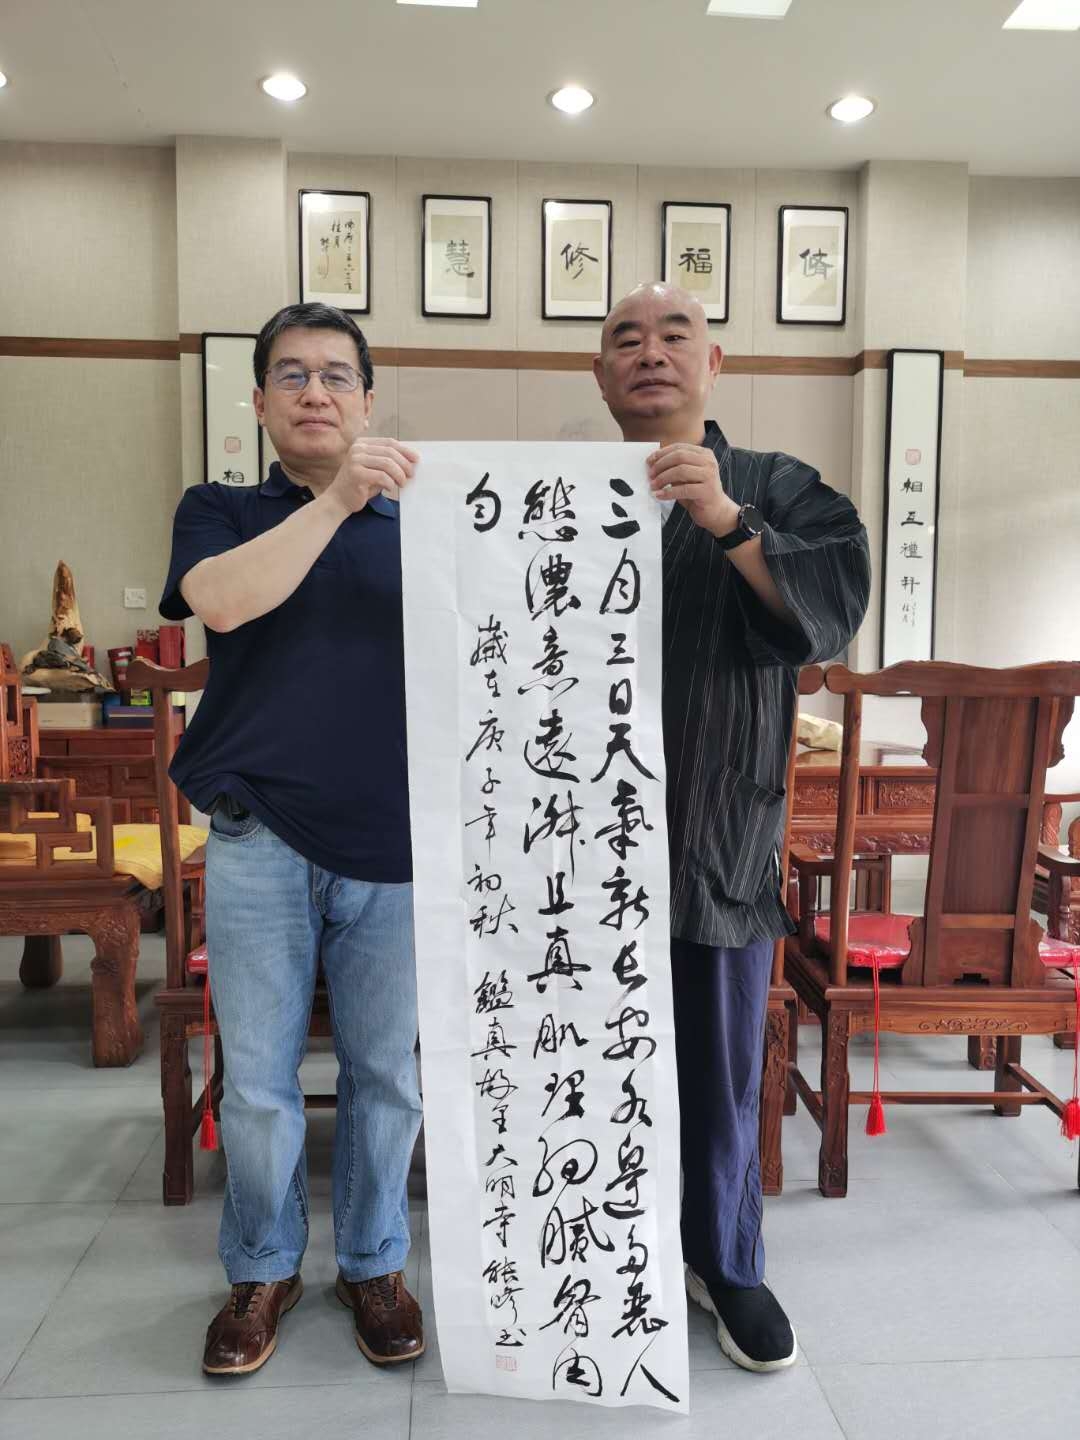 脩
福
修
慧
相
相互禮拜
三月三日天氣新长安水邊多麗人
態濃意遠淑且真肌理细膩骨肉
匀
歲在庚子年初秋 鑑真故里大明寺 能修书